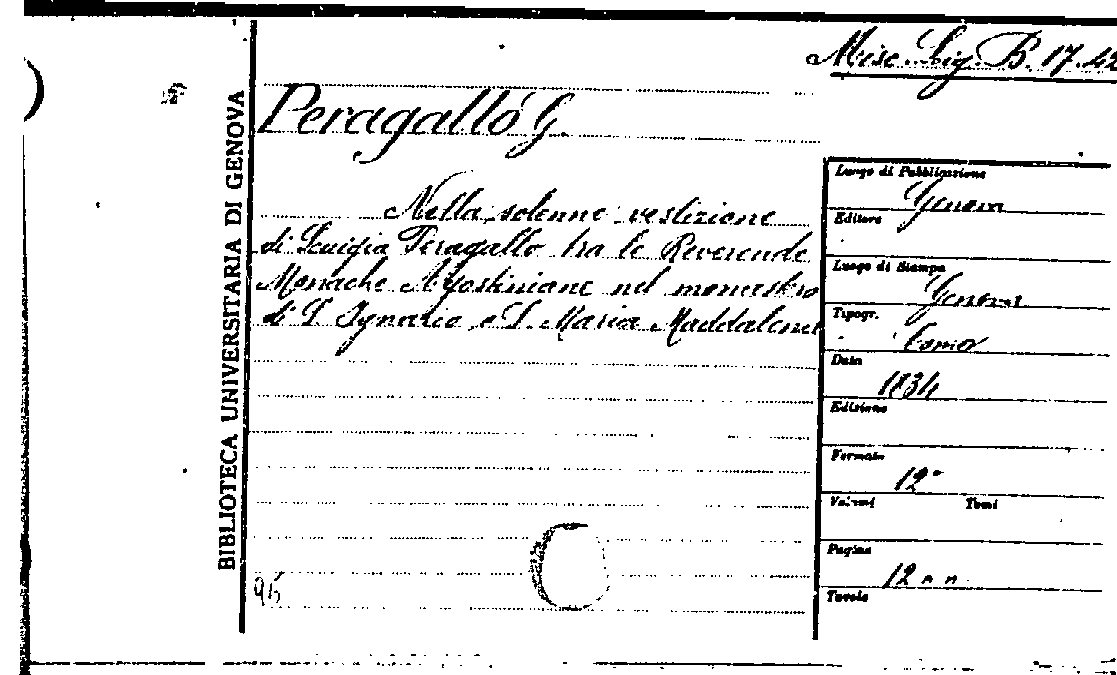 Misc. Lig. B. 17.42
BIBLIOTECA UNIVERSITARIA DI GENOVA
Peragallo G.
Nella solenne vestizione
di Luigia Peragallo tra le Reverende
Monache Agostiniane nel monastero
di S. Ignazio e S. Maria Maddalena
95
Luogo di Pubblicazione
Genova
Editore
Luogo di Stampa
Genova
Tipogr.
Data
1834
Edizione
Formato
12°
Volumi Tomi
Pagine
12 n n.
Tavole